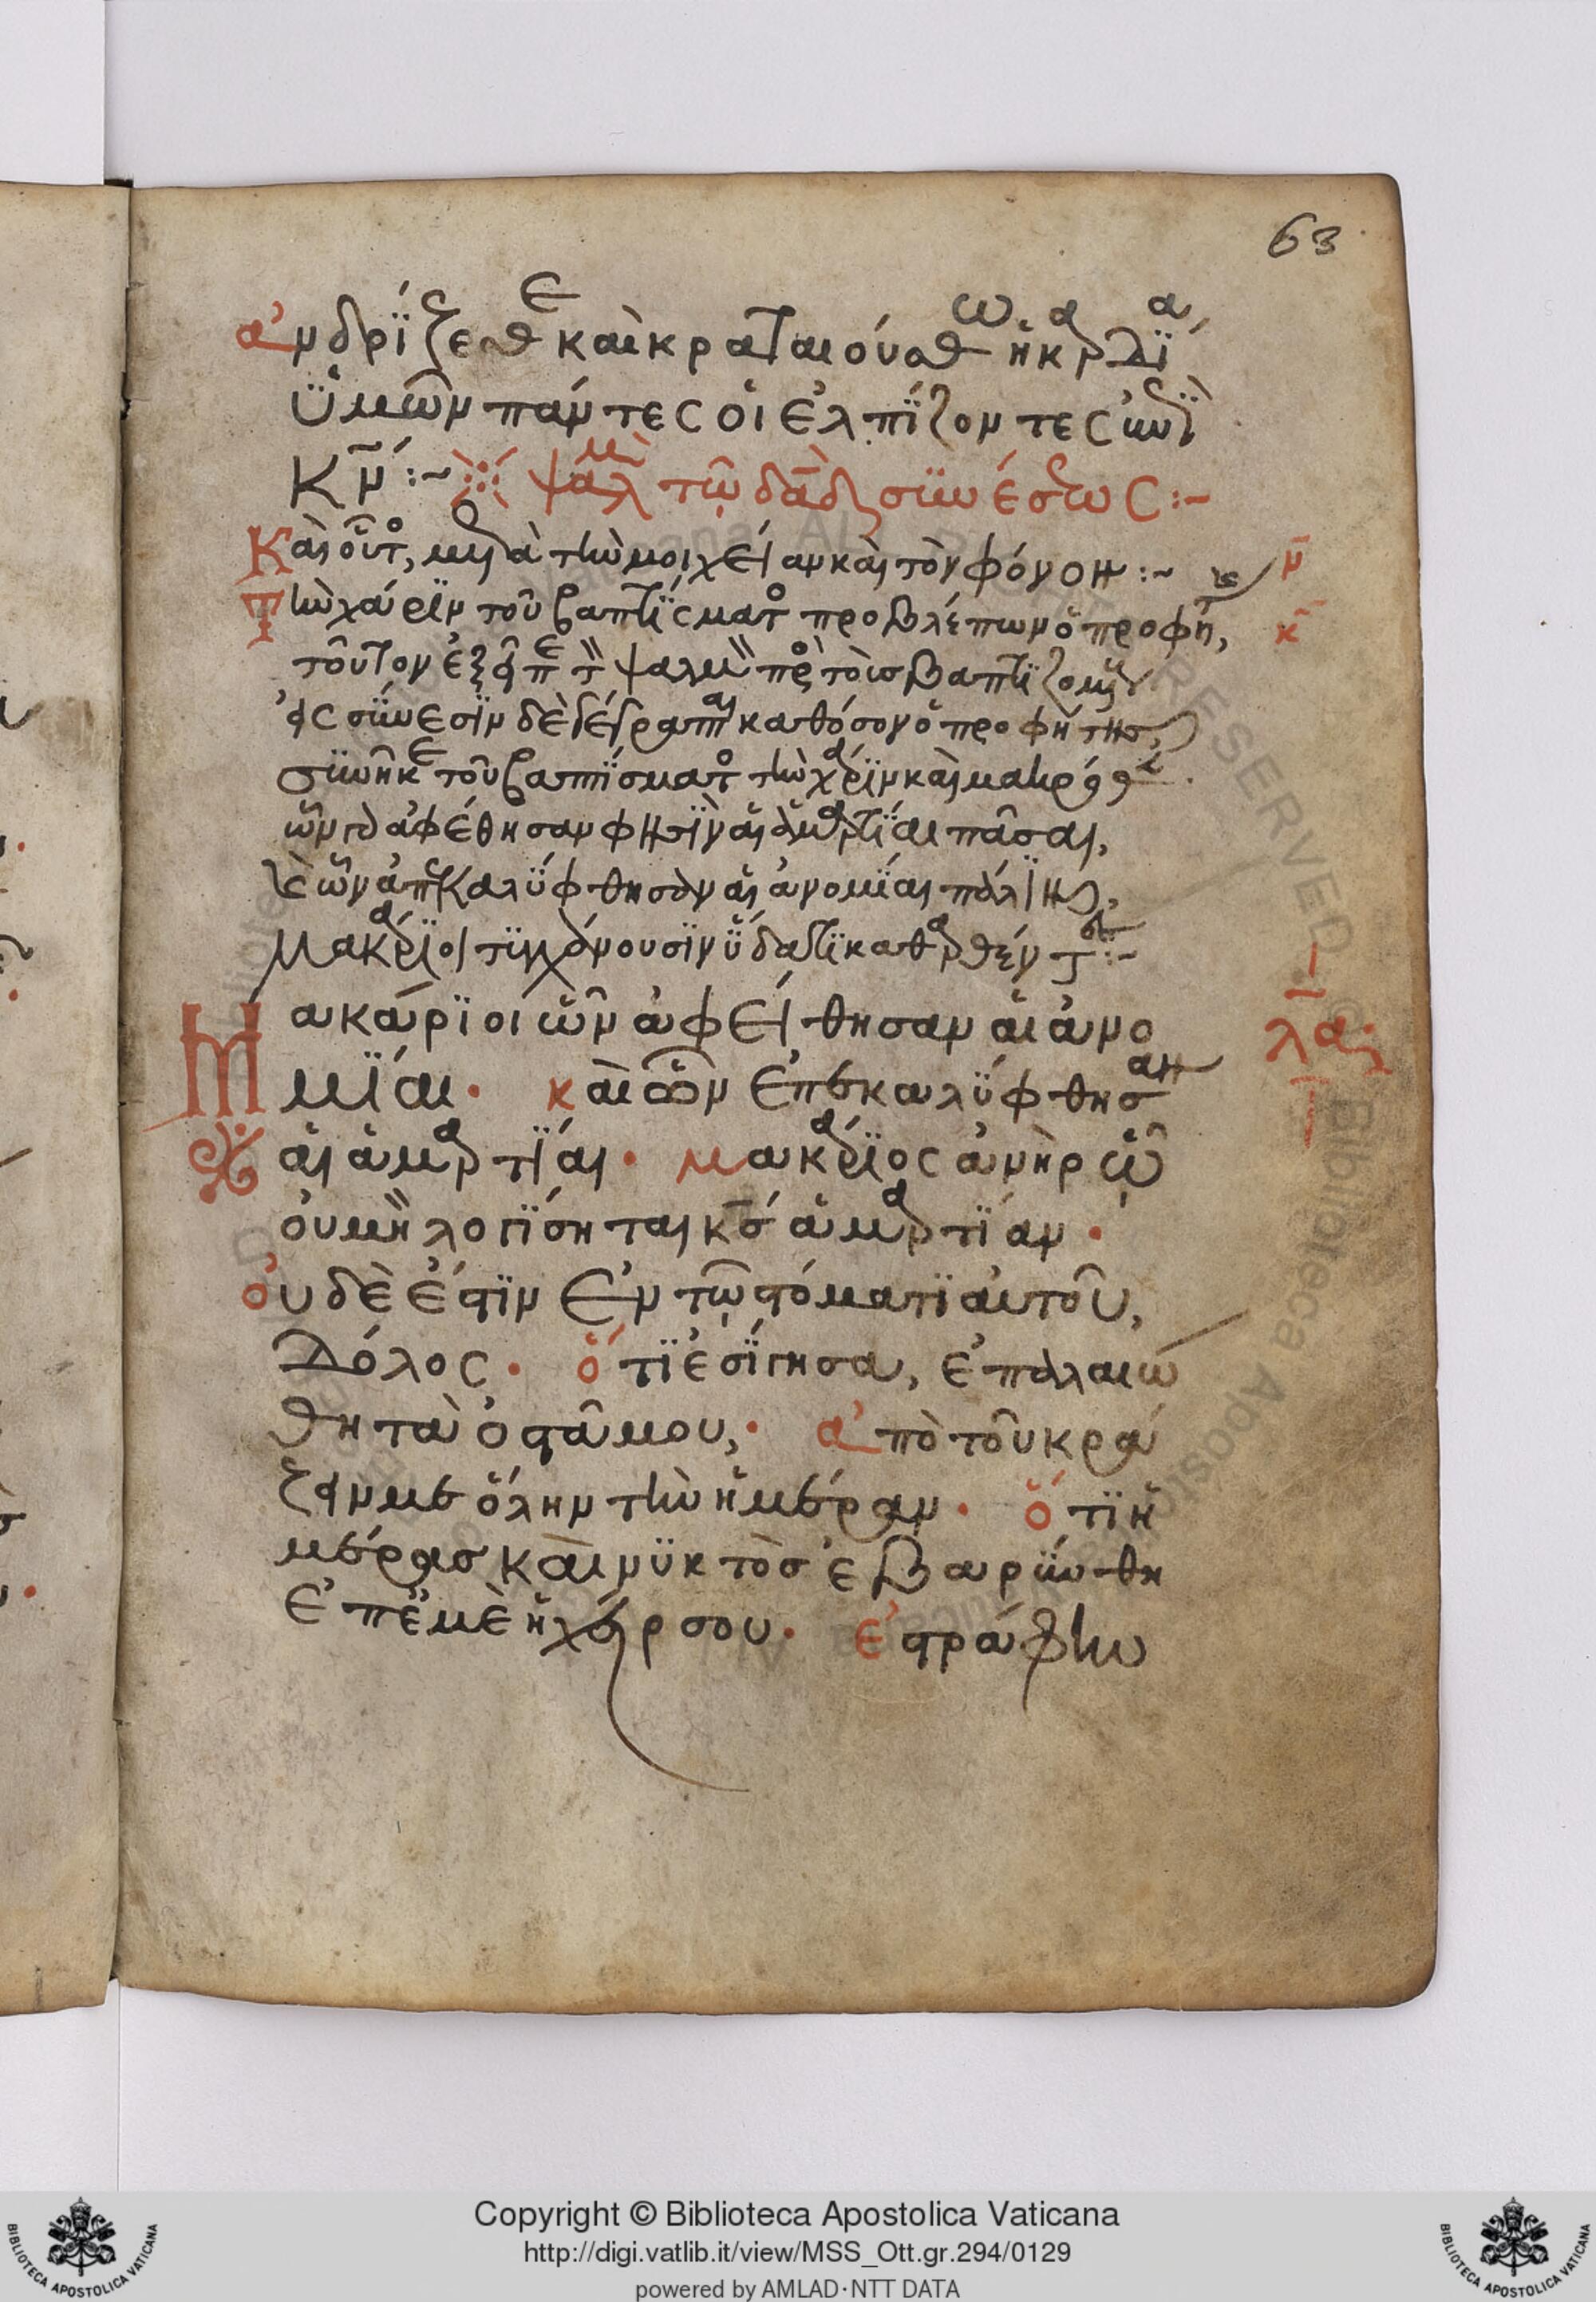 63
ἀνδρΐζεσθε καὶ κραταιούσθω. ἡ καρδΐα
ὑμῶν πάντες οἱ ἐλπΐζοντες ἐπῒ
κν̄ :~ ψαλμ τῶ δᾱδ συνέσεως :~
Καὶ οὗτος, μετὰ τὴν μοιχείαν καὶ τὸν φόνον :~ ν̄
Τὴν χάριν τοῦ βαπτΐσματος προβλέπων ὁ προφή, κ̄
τοῦτον ἐξ ψαλμ πρὸς τοὺς βαπτιζομέν
εἰς σύνεσιν δὲ γέγραπται καθόσον ὁ προφήτης,
συνῆκε τοῦ βαπτίσματος τὴν χάριν καὶ μακαρ
ὧν γὰρ ἀφέθησαν φησὶν αἱ ἁμαρτΐαι πᾶσαι,
καὶ ὧν ἀπεκαλύφθησαν αἱ ἀνομΐαι πάλιν,
Μακάριοι τυγχάνουσιν ὕδατι καθαρθέντες :~
Μακάριοι ὧν ἀφείθησαν αἱ ἀνο λα
μΐαι· καὶ ὧν ἐπεκαλύφθησαν
αἱ ἁμαρτΐαι· μακάριος ἀνὴρ ᾧ
οὐ μὴ λογΐσηται κς̄ ἁμαρτΐαν·
οὐδὲ ἔστιν ἐν τῷ στόματι αὐτοῦ,
δόλος· ὅτι ἐσΐγησα, ἐπαλαιώ
θη τὰ ὀστᾶ μου,· ἀπὸ τοῦ κρά
ζειν με ὅλην τὴν ἡμέραν· ὅτι ἡ
μέρας καὶ νυκτὸς ἐβαρύνθη
ἐπ' ἐμὲ ἡ χείρ σου· ἐστράφην
Copyright © Biblioteca Apostolica Vaticana
http://digi.vatlib.it/view/MSS_Ott.gr.294/0129
powered by AMLAD·NTT DATA
BIBLIOTECA APOSTOLICA VATICANA
BIBLIOTECA APOSTOLICA VATICANA